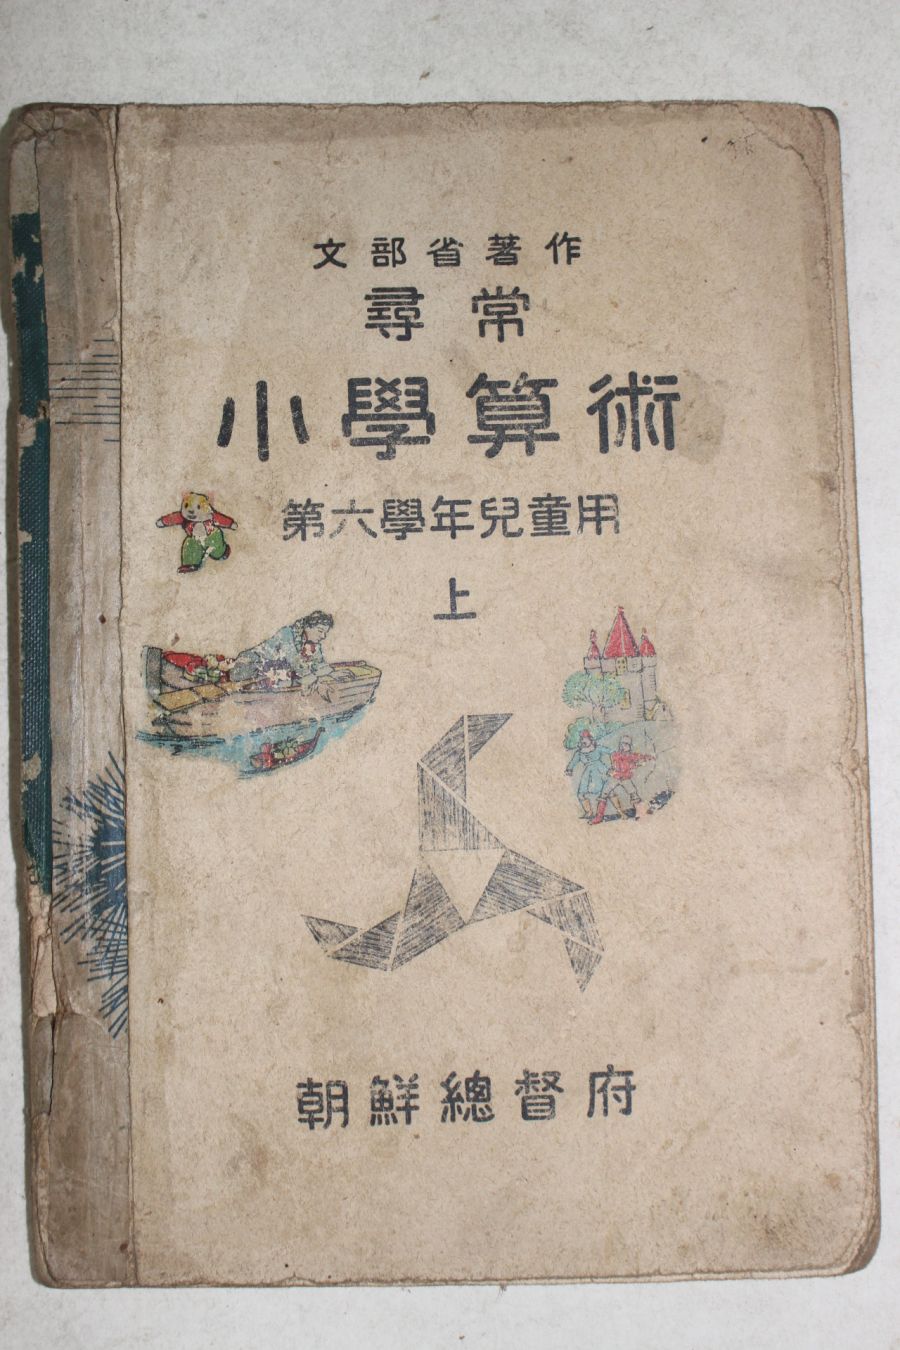 文部省著作
尋常
小學算術
第六學年兒童用
上
朝鮮總督府